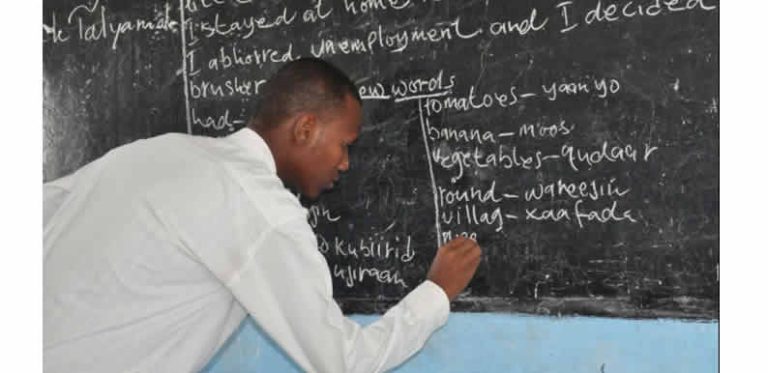 I stayed at home
I abhorred unemployment and I decided
brusher
had-
new words
tomatoes - yaanyo
banana - moos
vegetables - qudaar
round - wareesin
villag - xaafada
kubiirid